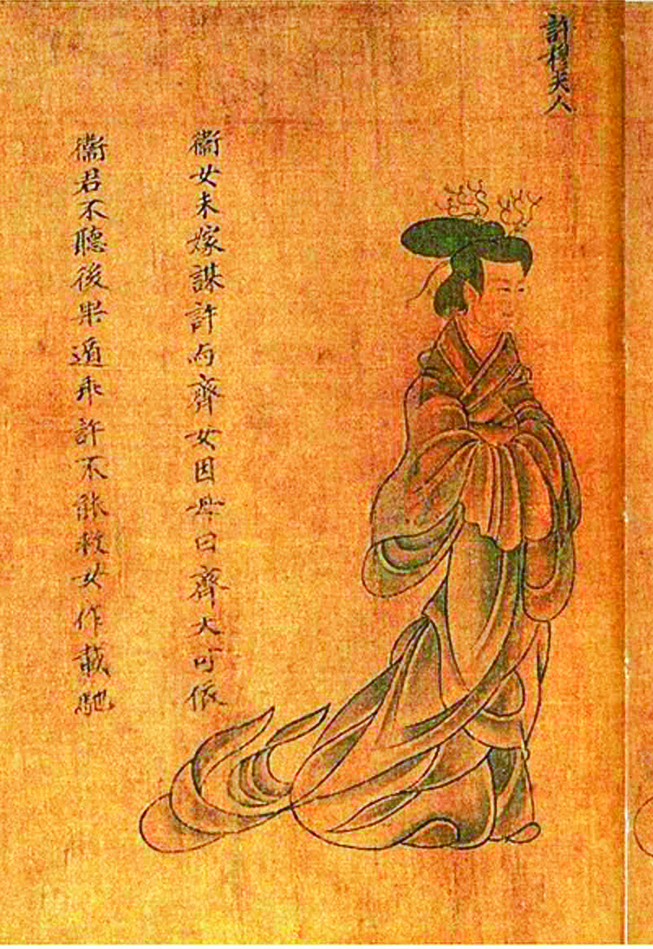 許穆夫人
衞女未嫁謀許与齊女因母曰齊大可依
衞君不聽後果遁乖許不能救女作載馳